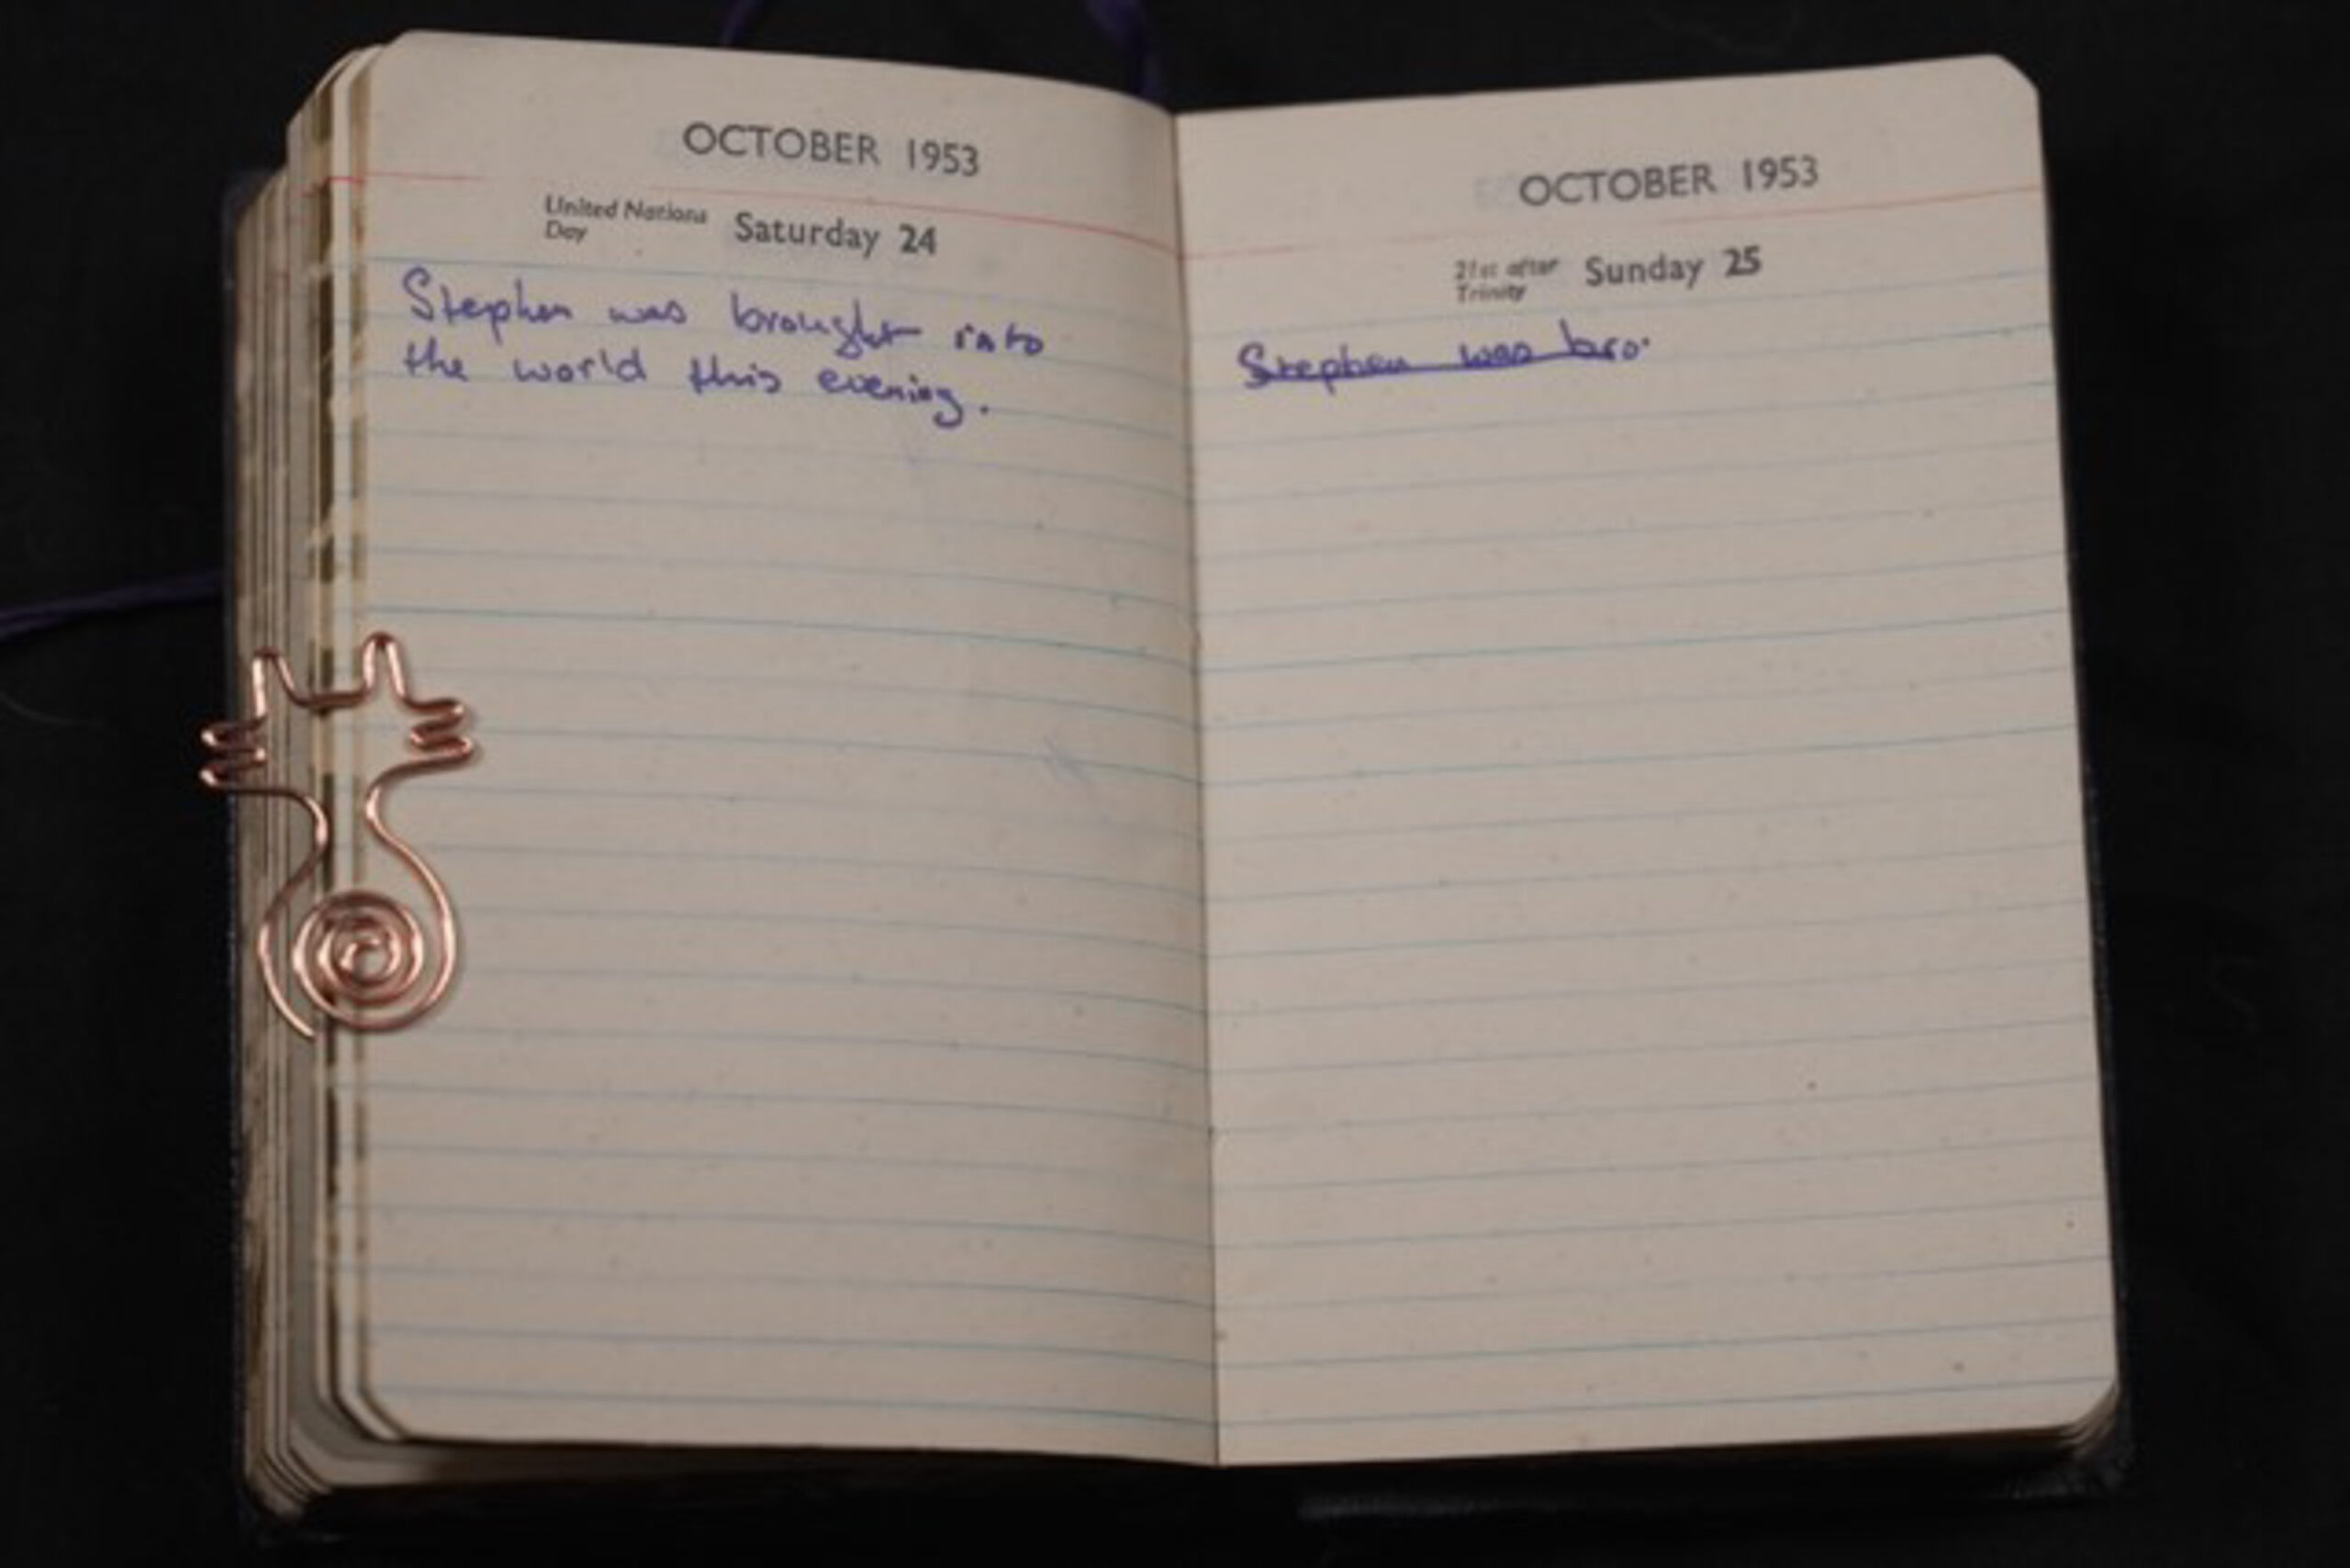 OCTOBER 1953
United Nations
Day
Saturday 24
Stephen was brought into
the world this evening.
OCTOBER 1953
21st after
Trinity
Sunday 25
Stephen was bro.